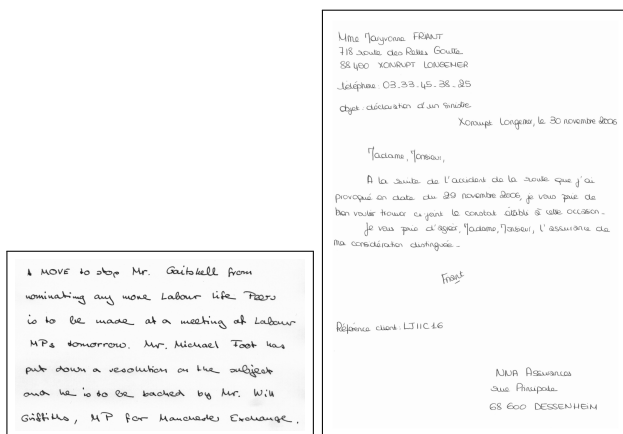 A MOVE to stop Mr. Gaitskell from
nominating any more Labour Life Peers
is to be made at a meeting of Labour
MPs tomorrow. Mr. Michael Foot has
put down a resolution on the subject
and he is to be backed by Mr. Will
Griffiths, MP for Manchester Exchange.
Mme Maryvonne FRIANT
718 route des Relles Goutte
88400 XONRUPT LONGEMER
téléphone : 03.33.45.38.25
objet : déclaration d'un sinistre
Xonrupt Longemer, le 30 novembre 2006
Madame, Monsieur,
A la suite de l'accident de la route que j'ai
provoqué en date du 29 novembre 2006, je vous prie de
bien vouloir trouver ci-joint le constat établi à cette occasion.
Je vous prie d'agréer, Madame, Monsieur, l'assurance de
ma considération distinguée.
Friant
Référence client : LJIIC16
NNA Assurances
rue Principale
68 600 DESSENHEIM